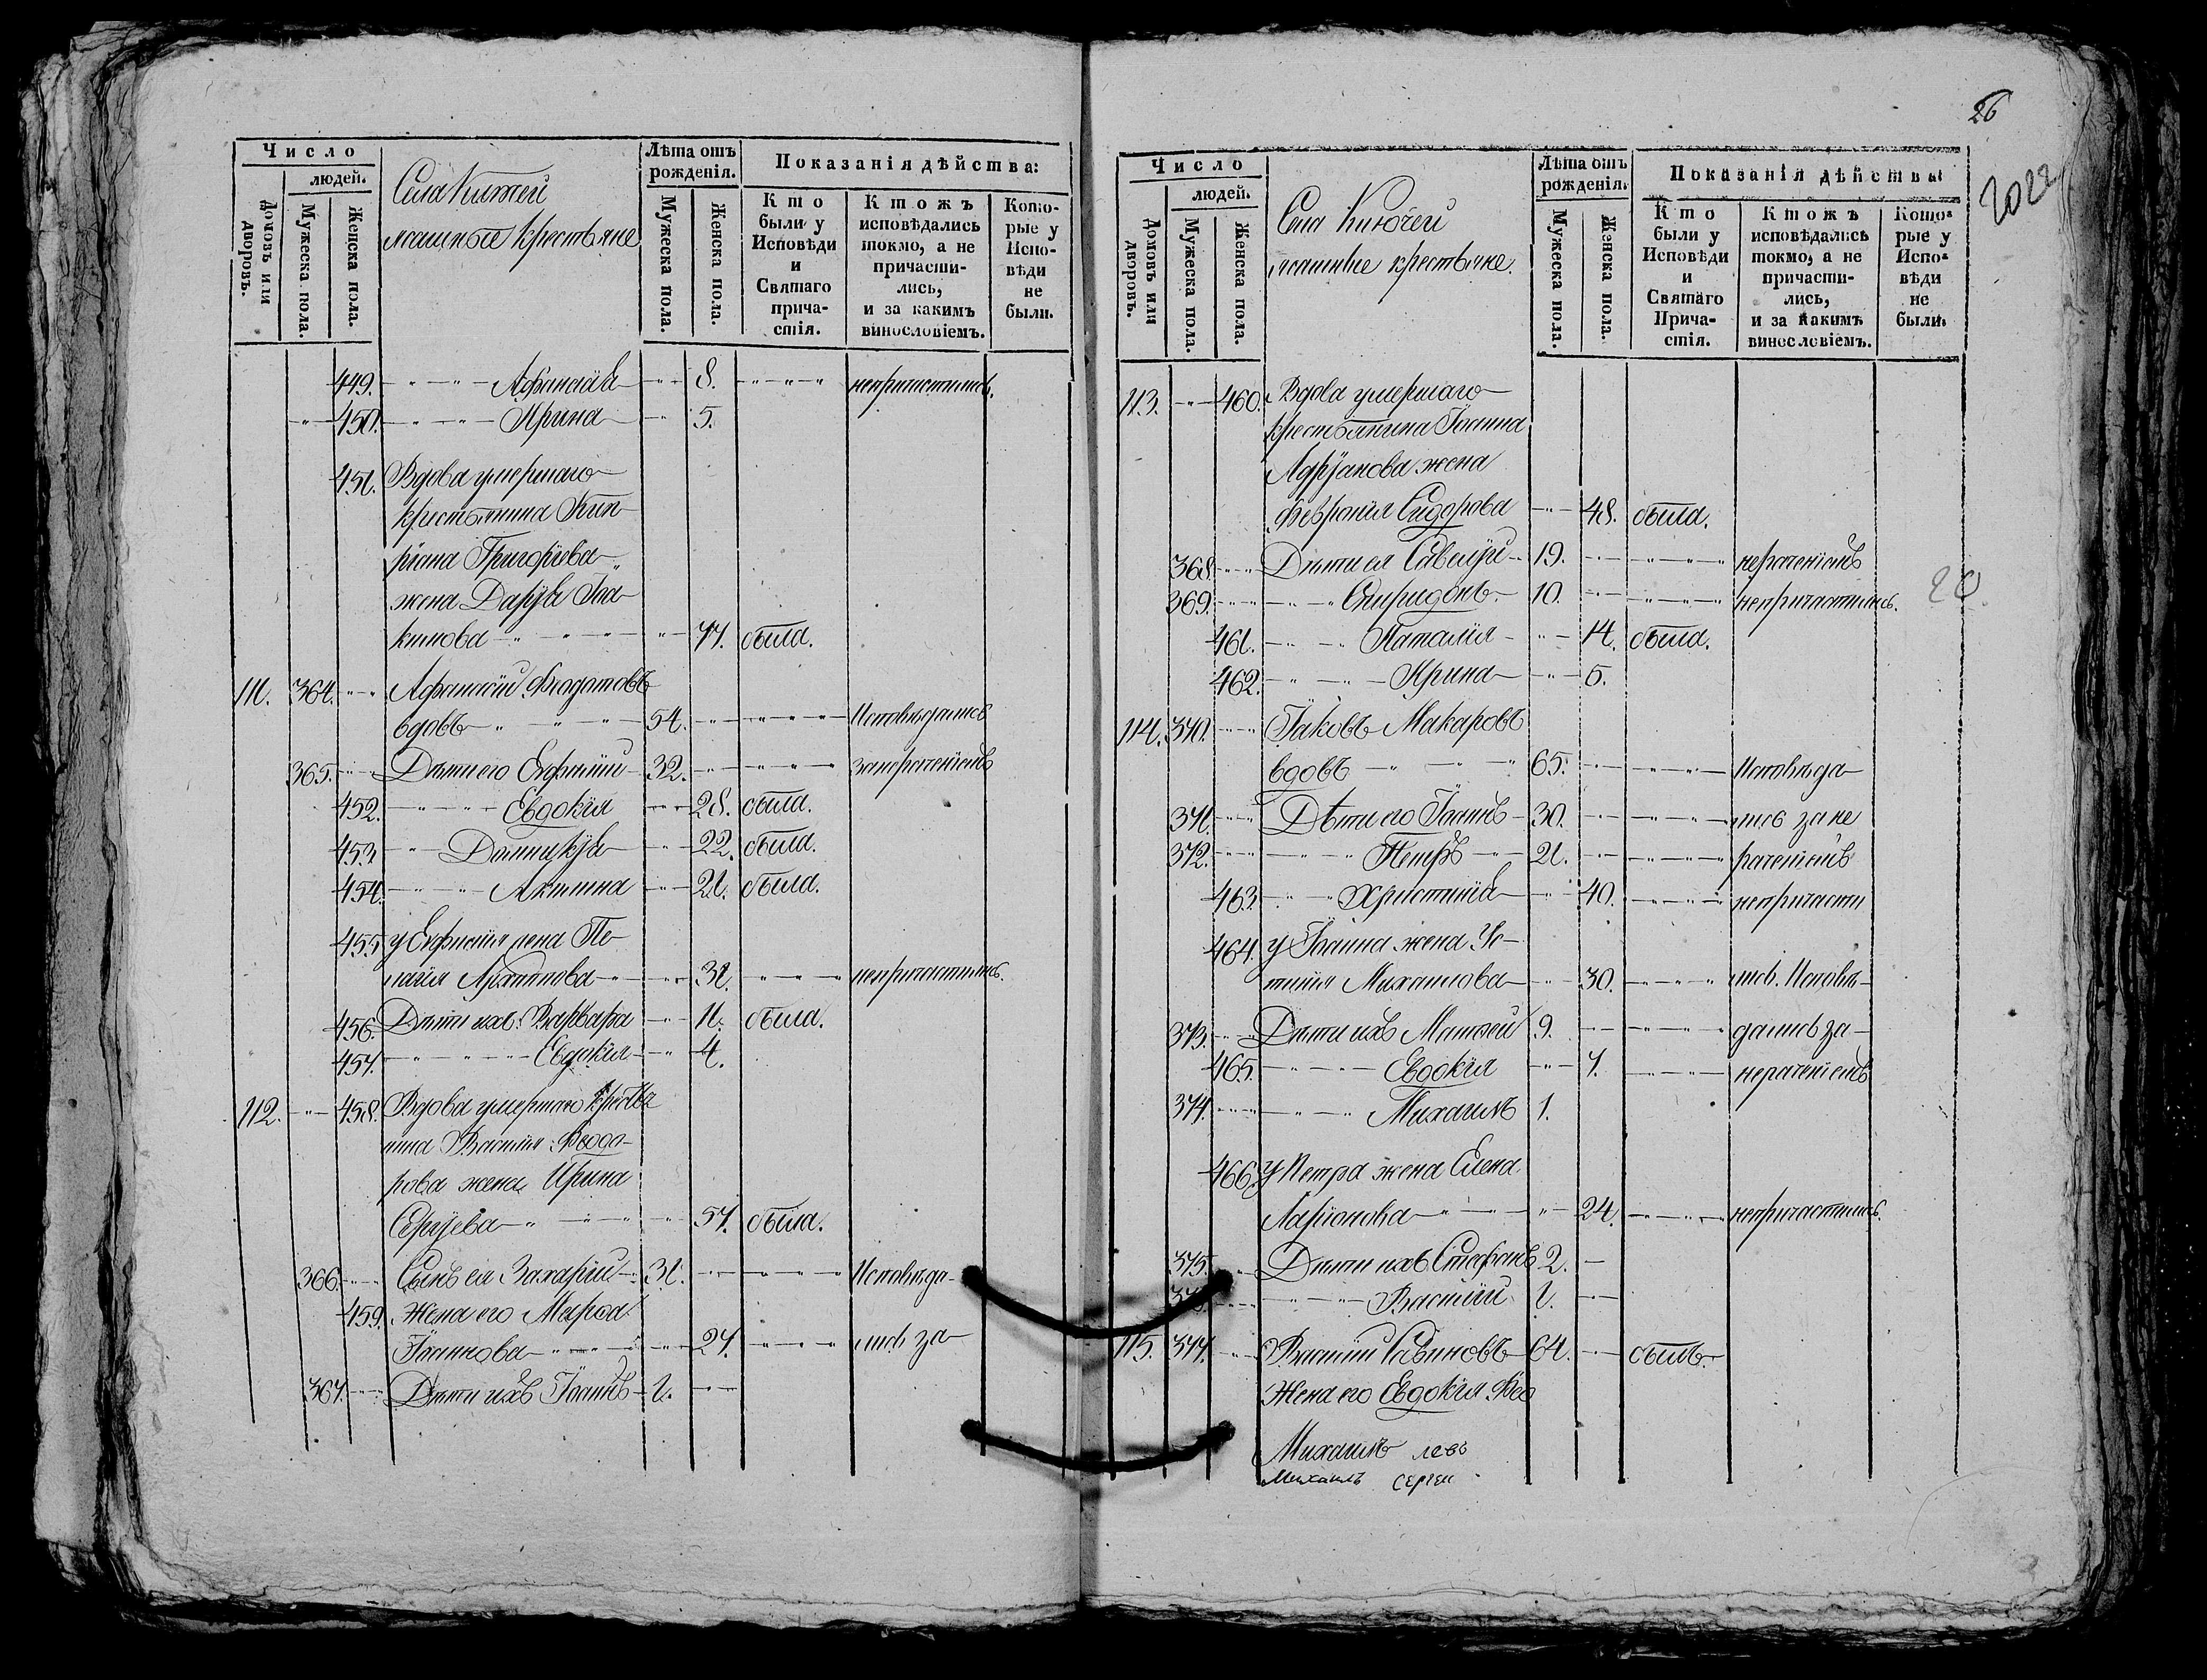 Число
людей.
Домовъ или дворовъ.
Мужеска пола.
Женска пола.
Села Ключей
ясашные крестьяне
Лѣта отъ
рожденія.
Мужеска пола.
Женска пола.
Показанія дѣйства:
Кто
были у
Исповѣди
и
Святаго
прича-
стія.
Ктожъ
исповѣдались
токмо, а не
причасти-
лись,
и за какимъ
винословіемъ.
Кото-
рые у
Испо-
вѣди
не
были.
449. 8. непричастилась.
450. Ирина 5.
451. Вдова умершаго
крестьянина Кип-
ріана Григорьева
жена Дарья Іоа-
кимова 77. была.
111. 364. Афанасій Феодотовъ
вдовъ 54. Исповѣдались
365. Дѣти его Евфимій 32. занераченіемъ
452. Евдокія 28. была.
453. Домникія 22. была.
454. 21. была.
455. у Евфимія жена Пе-
лагія Архипова 31. непричастилась.
456. Дѣти ихъ: Варвара 11. была.
457. Евдокія 4.
112. 458. Вдова умершаго крестья
нина Василія Феодо-
рова жена Ирина
Сергѣева 57. была.
366. Сынъ ея Захарій 31. Исповѣда-
459. Жена его Марфа
Іоаннова 27. лись за
367. Дѣти ихъ Іоаннъ 1.
26
2022
Число
людей.
Домовъ или дворовъ.
Мужеска пола.
Женска пола.
Села Ключей
ясашные крестьяне.
Лѣта отъ
рожденія.
Мужеска пола.
Женска пола.
Показанія дѣйства:
Кто
были у
Исповѣди
и
Святаго
Прича-
стія.
Ктожъ
исповѣдались
токмо, а не
причасти-
лись,
и за какимъ
винословіемъ.
Кото-
рые у
Испо-
вѣди
не
были.
113. 460. Вдова умершаго
крестьянина Іоанна
Адріанова жена
Февронія Сидорова 48. была.
368. Дѣти ея Савелій 19. нераченіемъ
369. Спиридонъ 10. непричастились.
461. Наталія 14. была.
462. Ирина 5.
114. 370. Іаковъ Макаровъ
вдовъ 65. Исповѣда-
371. Дѣти его Іоаннъ 30. лись зане
372. Петръ 21. раченіемъ
463. Христинія 40. непричасти
464. у Іоанна жена Ус-
тинія Михаилова 30. лись. Исповѣ-
373. Дѣти ихъ Матѳей 9. дались за-
465. Евдокія 7. нераченіемъ
374. Михаилъ 1.
466. у Петра жена Елена
Ларіонова 24. непричастилась.
375. Дѣти ихъ Стефанъ 2.
376. Василій 1.
115. 377. Василій Савиновъ 64. былъ.
Жена его Евдокія Фео
Михаилъ левъ
Михаилъ сергеи